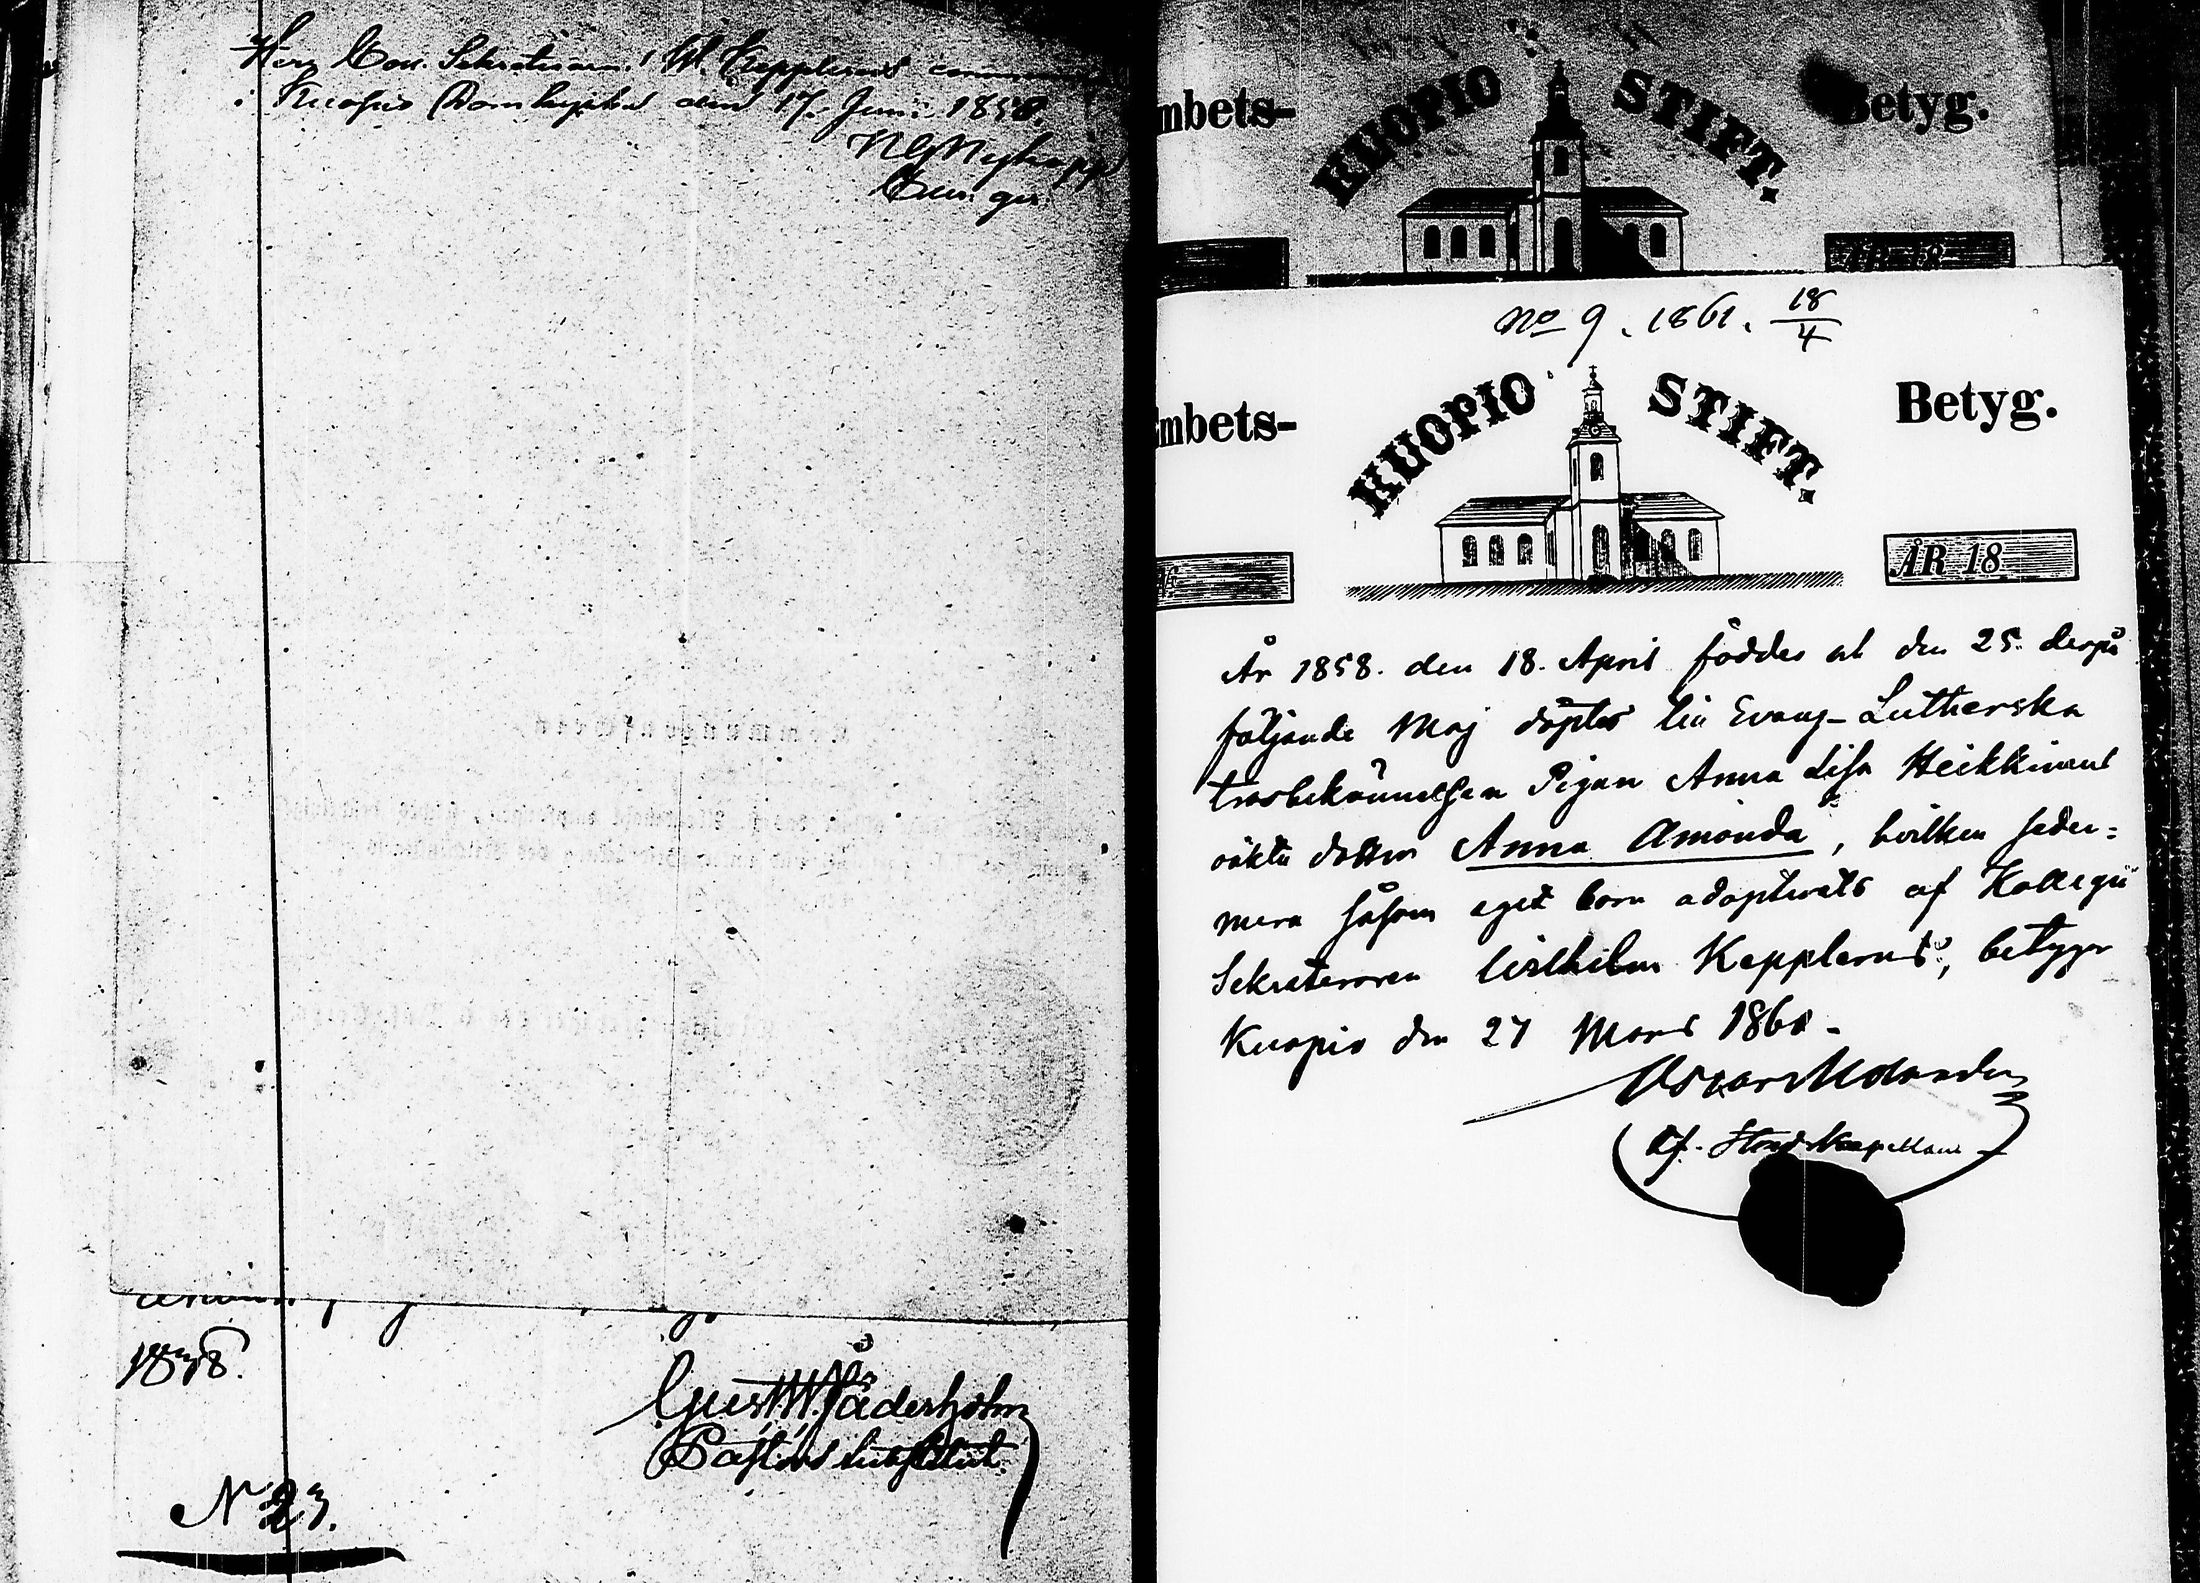 Herr Coll. Sekreteraren W. Kepplerus
i Kuopio Domkyrka den 17. Juni 1858.
1858.
Gust. W. Fäderholm
Pastors Substitut.
N 23.
mbets-
KUOPIO STIFT.
Betyg.
ÅR 18
No 9. 1861. 18/4
mbets-
KUOPIO STIFT.
Betyg.
ÅR 18
År 1858. den 18. April föddes och den 25. derpå
följande Maj döptes till Evang-Lutherska
trosbekännelsen Pigan Anna Lisa Heikkinens
oäkta dotter Anna Amanda, hvilken seder=
mera såsom eget barn adopterats af Kollegii
Sekreteraren Wilhelm Kepplerus, betygar
Kuopio den 27 Mars 1861 -
Oscar Molander
Kf. Stads Kapellan